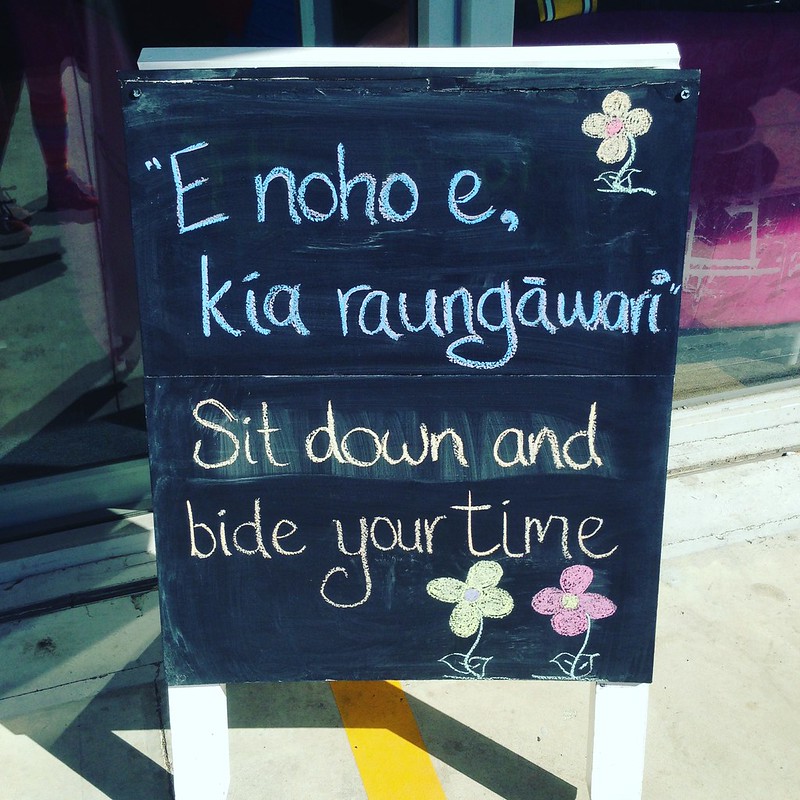 "E noho e,
kia raungāwari"
Sit down and
bide your time